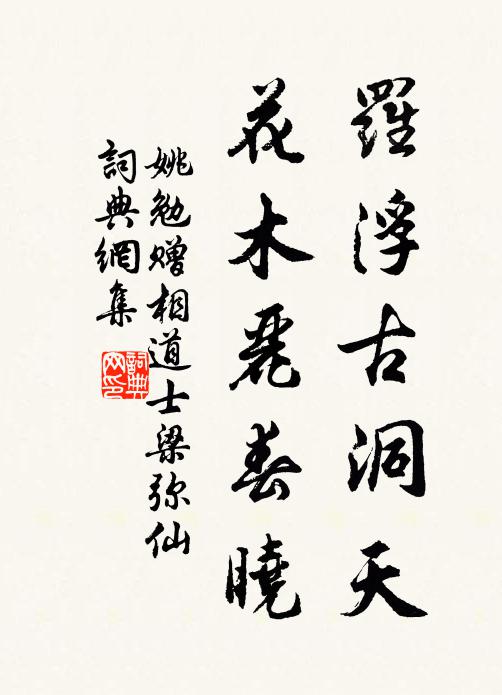 羅浮古洞天
花木麗春曉
姚勉赠相道士梁弥仙
詞典網集
詞典网印